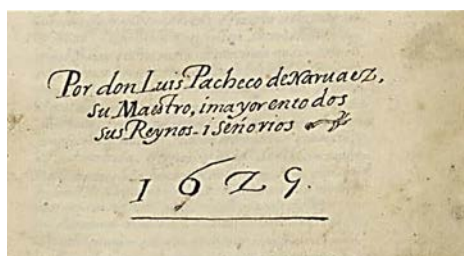 Por don Luis Pacheco de Naruaez,
su Maestro, i mayor en todos
sus Reynos i señorios
1629.